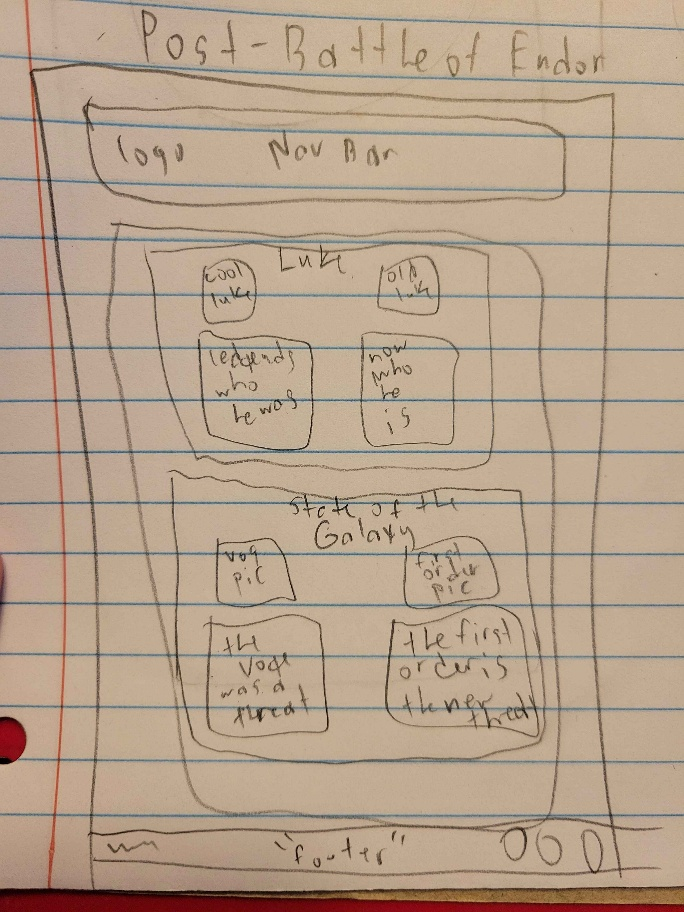 Post-Battle of Endor
logo Nav Bar
Luke
cool
luke
old
luke
ledgends
who
he was
now
who
he
is
State of the
Galaxy
vog
pic
first
order
pic
the
vog
was a
threat
the first
order is
the new
threat
"footer"